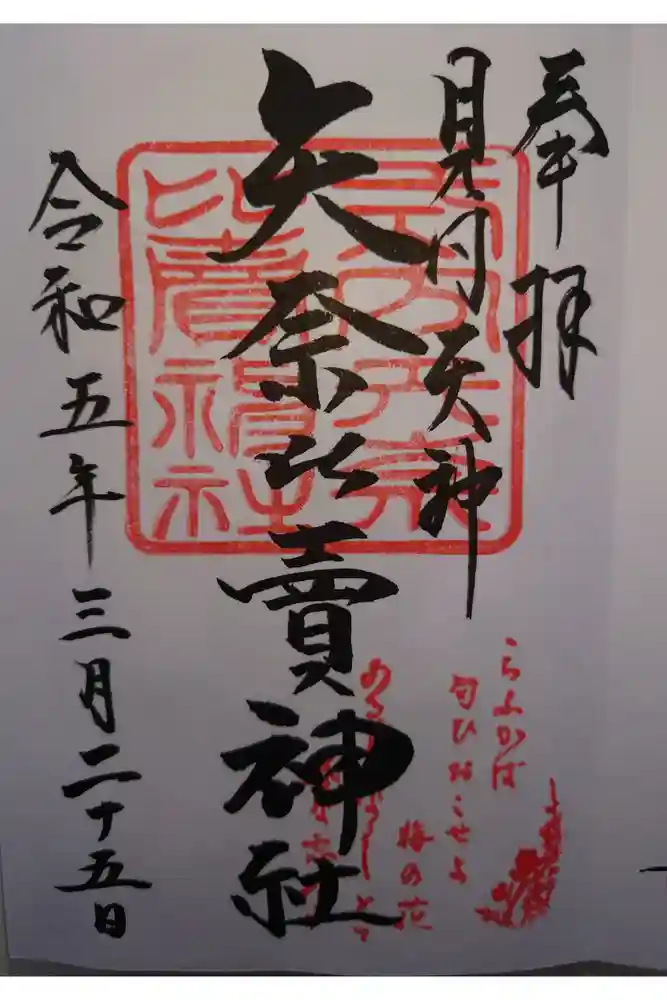 奉拝
見付天神
矢奈比賣神社
令和五年三月二十五日
式内矢奈
比賣神社
こちふかば
匂ひおこせよ
梅の花
あるじなしとて